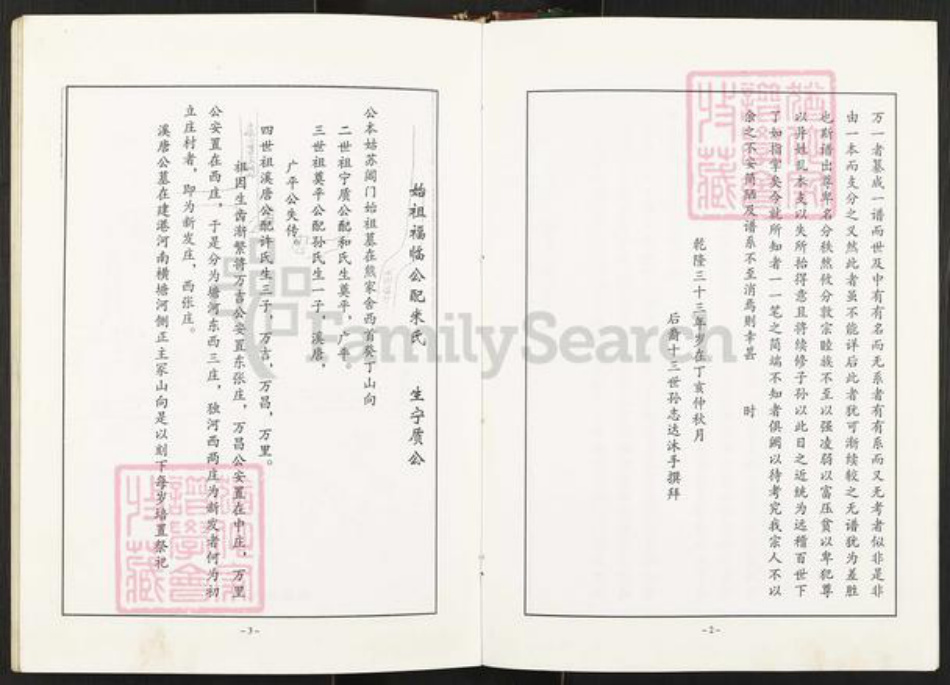 万一者纂成一谱而世及中有有名而无系者有有系而又无考者似非是非
由一本而支分之又然此者虽不能详后此者犹可渐续较之无谱犹为差胜
也斯谱出尊卑名分秩然攸分敦宗睦族不至以强凌弱以富压贫以卑犯尊
以异姓乱本支以失所拾得意且将续修子孙以此日之近统为远稽百世下
了如指掌矣今就所知者一一笔之简端不知者俱阙以待考究我宗人不以
余之不安简陋及谱系不至消焉则幸甚 时
乾隆三十三年岁在丁亥仲秋月
后裔十三世孙志达沐手撰拜
-2-
始祖福临公配朱氏 生宁质公
公本姑苏阊门始祖墓在熊家舍西首癸丁山向
二世祖宁质公配和氏生奠平,广平。
三世祖奠平公配孙氏生一子,溪唐,
广平公失传。
四世祖溪唐公配许氏生三子,万言,万昌,万里。
祖因生齿渐繁将万言公安置东张庄,万昌公安置在中庄,万里
公安置在西庄,于是分为塘河东西三庄,独河西两庄为新发者何为初
立庄村者,即为新发庄,西张庄。
溪唐公墓在建港河南横塘河侧正主冢山向是以刻下每岁培置祭祀
-3-
FamilySearch